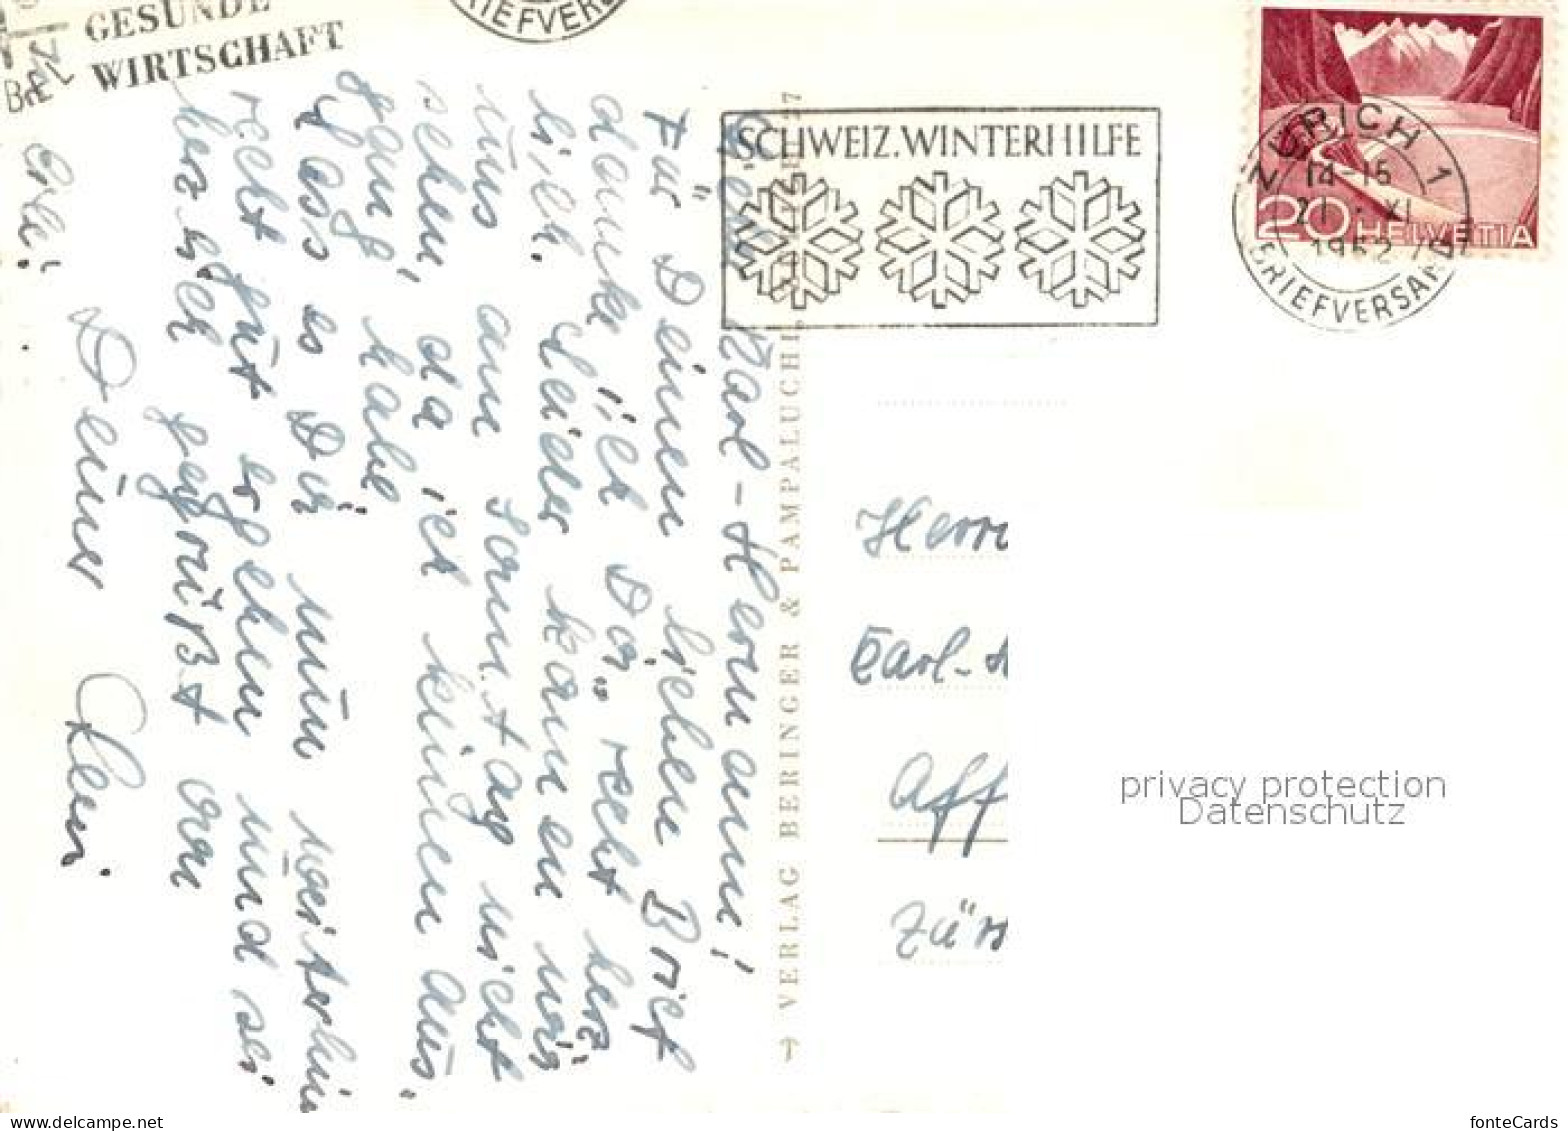 GESUNDE
WIRTSCHAFT
SCHWEIZ. WINTERHILFE
ZÜRICH 1
14-15
21. XI
1952
BRIEFVERSAND
20 HELVETIA
Karl-Hermann!
Für Deinen lieben Brief
danke ich Dir, recht herz
lich. Leider kann en wir
uns am Sonntag nicht
sehen, da ich keinen Aus.
gang habe
dass es Dir nun weiterhin
recht gut ergehen und sei
herzlich gegrüßt von
Deiner
VERLAG BERINGER & PAMPALUCHI
Herrn
Karl-H
Aff
Zür
privacy protection
Datenschutz
delcampe.net
fonteCards